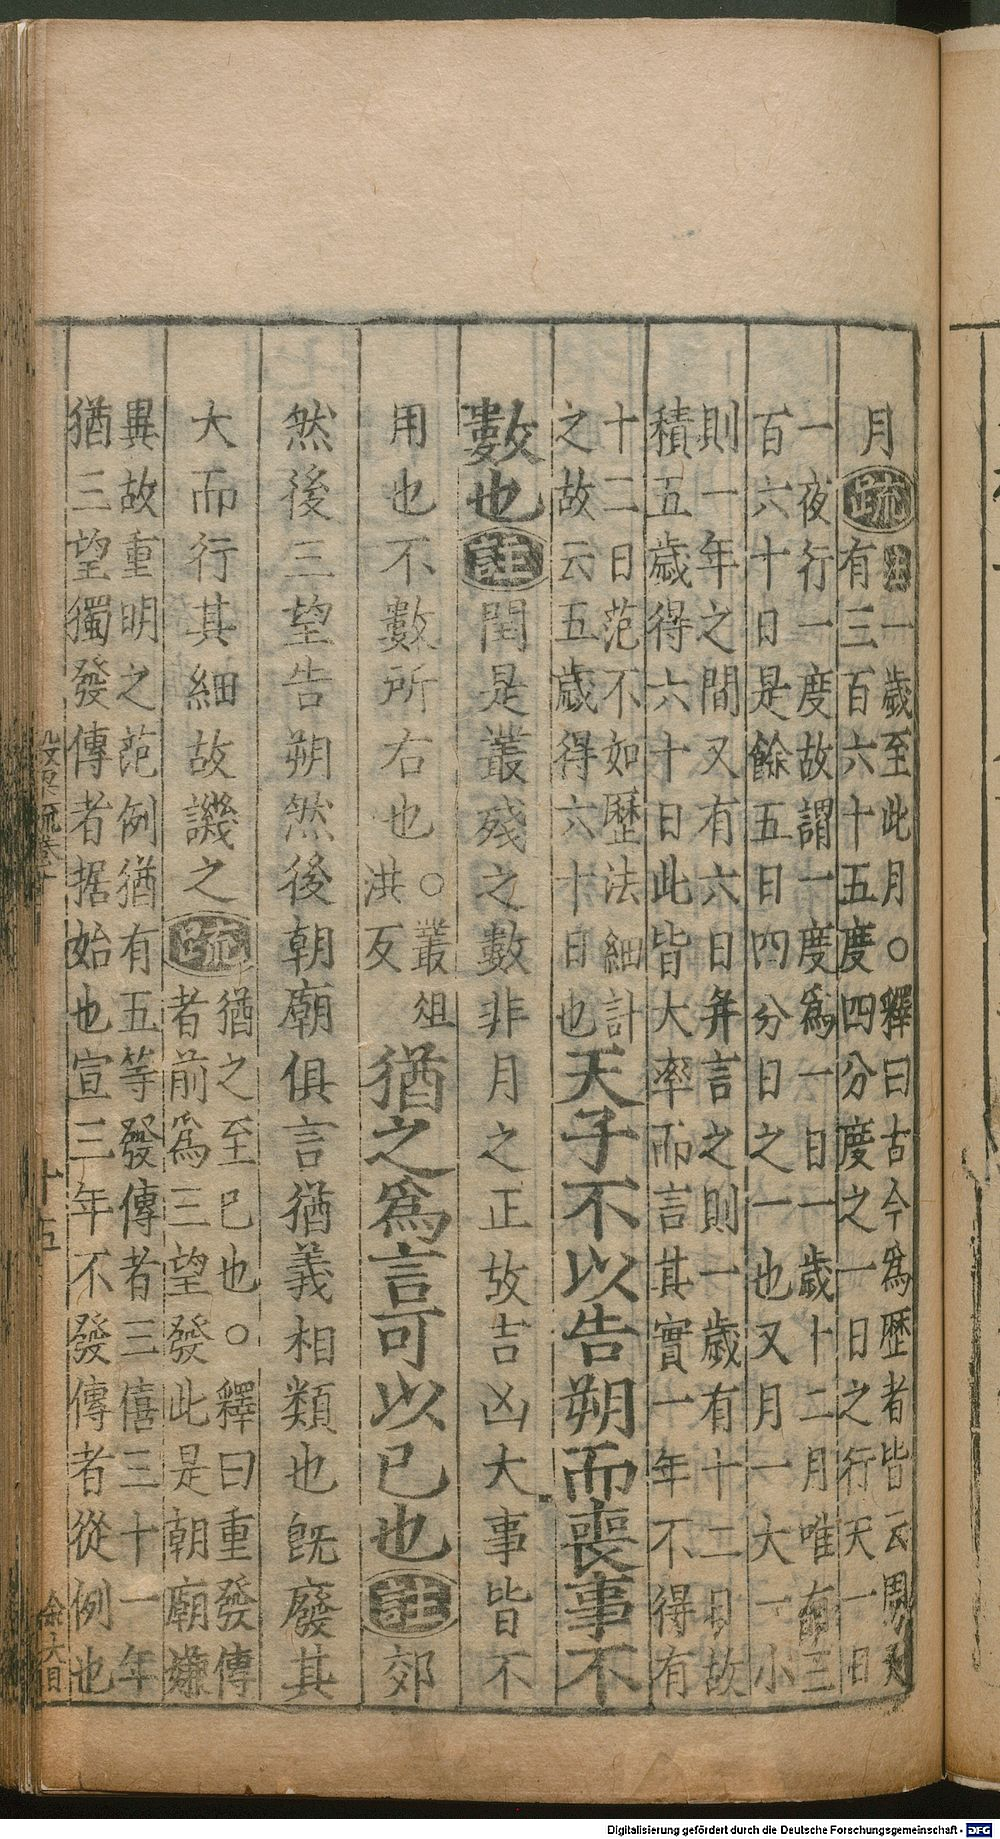 月疏
註一歲至此月○釋曰古今爲歷者皆云周天
有三百六十五度四分度之一日之行天一日
一夜行一度故謂一度爲一日一歲十二月唯有三
百六十日是餘五日四分日之一也又月一大一小
則一年之間又有六日并言之則一歲有十二日故
積五歲得六十日此皆大率而言其實一年不得有
十二日范不如歷法細計
之故云五歲得六十日也
天子不以告朔而喪事不
數也註閏是叢殘之數非月之正故吉凶大事皆不
用也不數所右也○叢徂
洪反
猶之爲言可以已也註郊
然後三望告朔然後朝廟俱言猶義相類也旣廢其
大而行其細故譏之疏
猶之至已也○釋曰重發傳
者前爲三望發此是朝廟嫌
異故重明之范例猶有五等發傳者三僖三十一年
猶三望獨發傳者据始也宣三年不發傳者從例也
榖梁疏卷十
十五
余六日
Digitalisierung gefördert durch die Deutsche Forschungsgemeinschaft - DFG